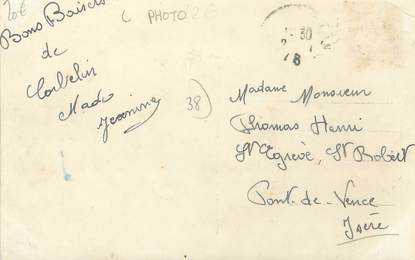 20€
( PHOTO
Bons Baisers
de
Corbelin
Mado
Jeanine
38)
30
8
Madame Monsieur
Thomas Henri
St Egrève, St Robert
Pont-de-Vence
Isère